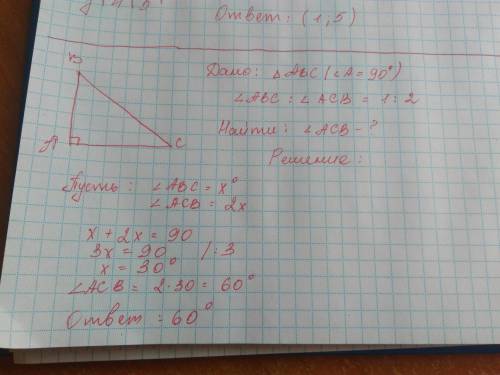 Ответ: (1;5)
B
A
C
Дано: △ABC (∠A = 90°)
∠ABC : ∠ACB = 1 : 2
Найти: ∠ACB - ?
Решение:
Пусть: ∠ABC = x°
∠ACB = 2x
x + 2x = 90
3x = 90 /:3
x = 30°
∠ACB = 2·30 = 60°
Ответ = 60°